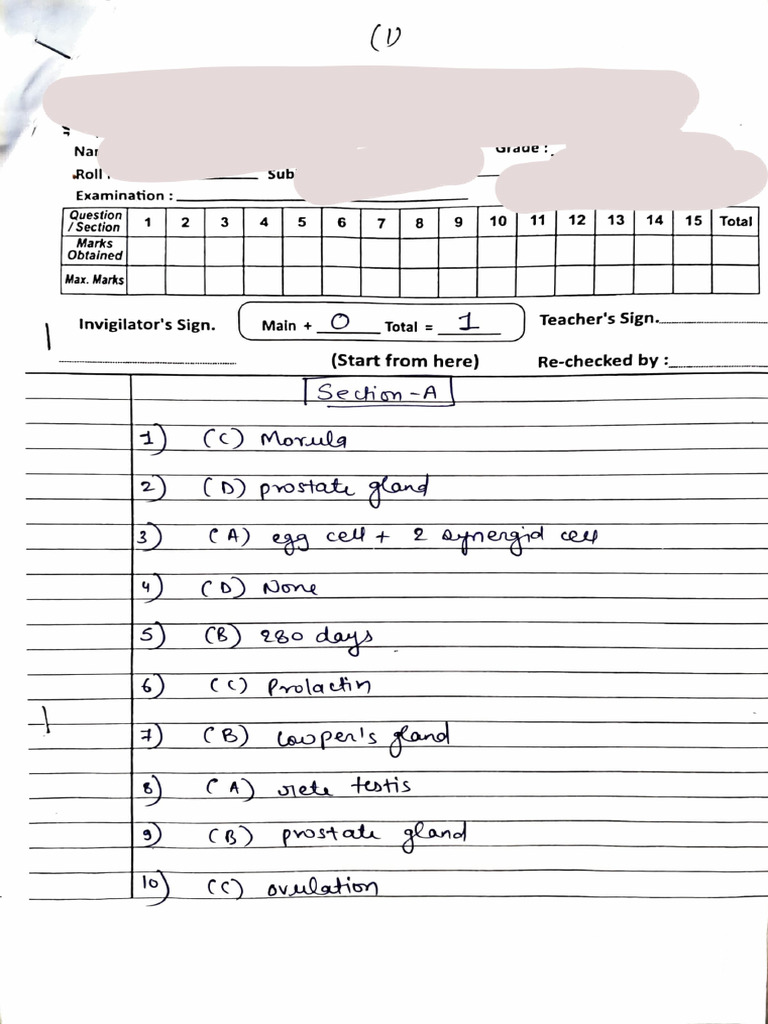 (1)
Grade :
Roll Sub
Examination :
Question / Section 1 2 3 4 5 6 7 8 9 10 11 12 13 14 15 Total
Marks Obtained
Max. Marks
Invigilator's Sign. Main + 0 Total = 1 Teacher's Sign.
(Start from here) Re-checked by :
Section-A
1) (C) Morula
2) (D) prostate gland
3) (A) egg cell + 2 synergid cell
4) (D) None
5) (B) 280 days
6) (C) Prolactin
7) (B) cowper's gland
8) (A) rete testis
9) (B) prostate gland
10) (C) ovulation